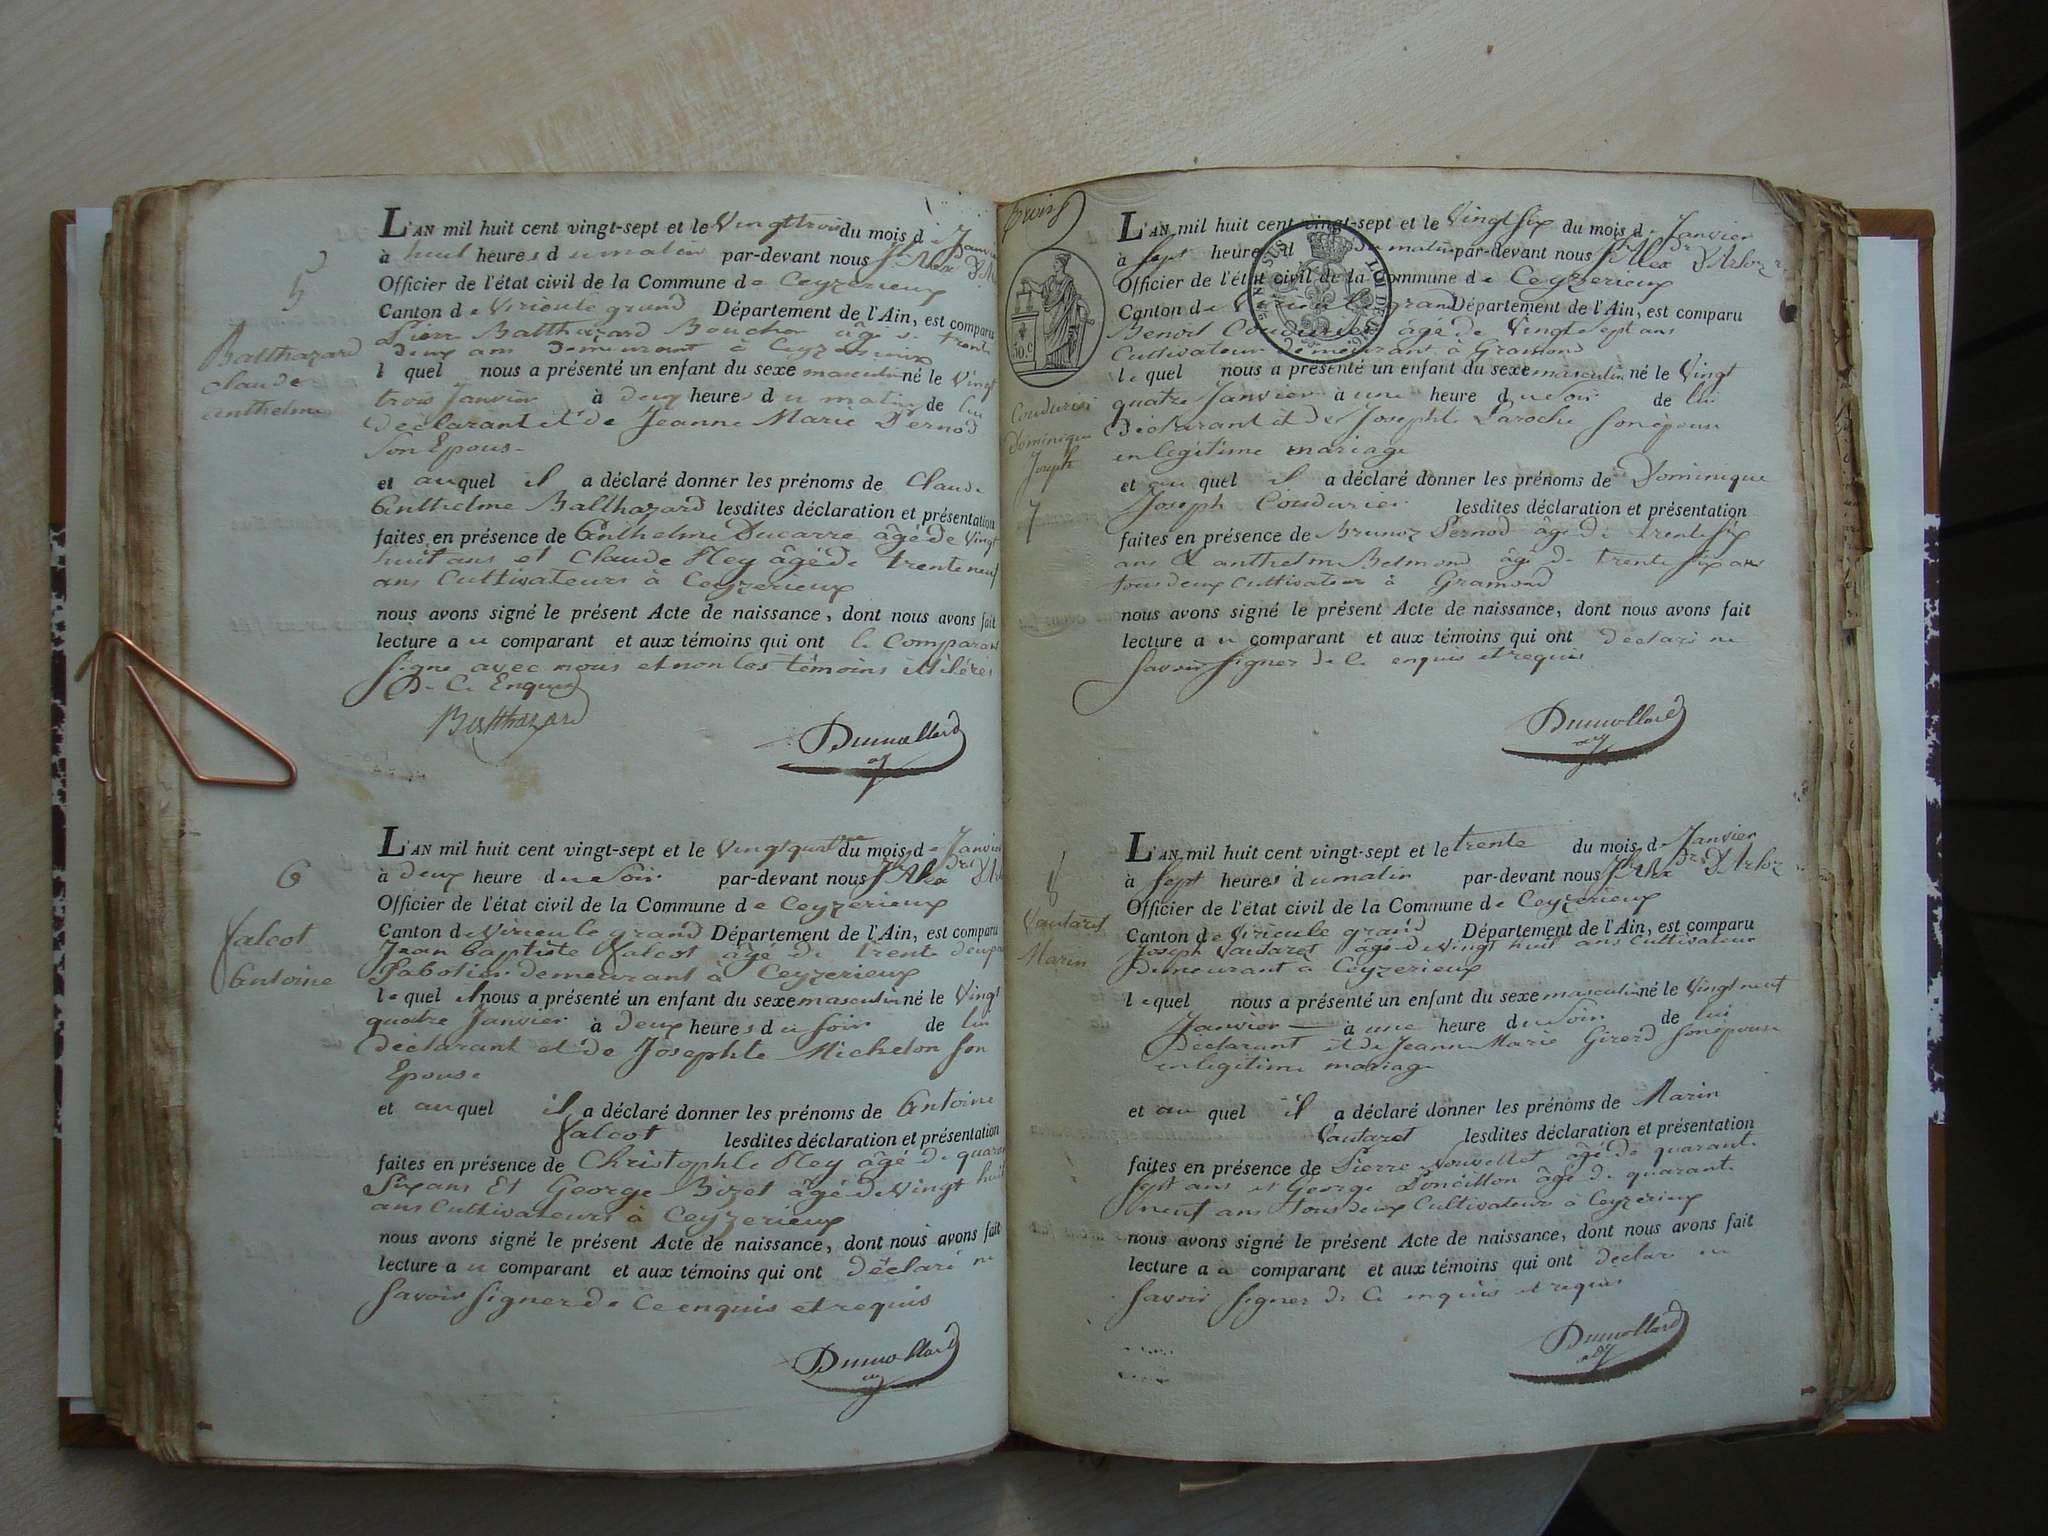 5
Balthazard
Claude
anthelme
L'AN mil huit cent vingt-sept et le Vingt trois du mois de Janvier
à huit heures du matin par-devant nous
Officier de l'état civil de la Commune de Ceyzerieux
Canton de Virieu le grand Département de l'Ain, est comparu
Pierre Balthazard Boucher âgé de trente
deux ans demeurant à Ceyzerieux
lequel nous a présenté un enfant du sexe masculin né le Vingt
trois Janvier à deux heures du matin de lui
déclarant et de Jeanne Marie Pernod
Son Epouse
et auquel il a déclaré donner les prénoms de Claude
Anthelme Balthazard lesdites déclaration et présentation
faites en présence de Anthelme Ducarre âgé de Vingt
huit ans et Claude Rey âgé de trente neuf
ans Cultivateurs à Ceyzerieux
nous avons signé le présent Acte de naissance, dont nous avons fait
lecture au comparant et aux témoins qui ont le Comparant
signé avec nous et non les témoins
De Ce Enquis
Balthazard
Dumollard
6
Falcot
Antoine
L'AN mil huit cent vingt-sept et le Vingt quatre du mois de Janvier
à deux heure du Soir par-devant nous
Officier de l'état civil de la Commune de Ceyzerieux
Canton de Virieu le grand Département de l'Ain, est comparu
Jean Baptiste Falcot âgé de trente deux
Sabotier demeurant à Ceyzerieux
lequel il nous a présenté un enfant du sexe masculin né le Vingt
quatre Janvier à deux heures du Soir de lui
déclarant et de Josephte Michelon Son
Epouse
et auquel il a déclaré donner les prénoms de Antoine
Falcot lesdites déclaration et présentation
faites en présence de Christophle Rey âgé de quarante
Six ans Et George Bizet âgé de Vingt huit
ans Cultivateurs à Ceyzerieux
nous avons signé le présent Acte de naissance, dont nous avons fait
lecture au comparant et aux témoins qui ont déclaré ne
Savoir Signer de Ce enquis et requis
Dumollard
trois
30.c
Coudurier
Dominique
Joseph
7
L'AN mil huit cent vingt-sept et le Vingt Six du mois de Janvier
à Sept heures du matin par-devant nous
Officier de l'état civil de la Commune de Ceyzerieux
Canton de Virieu le grand Département de l'Ain, est comparu
Benoit Coudurier âgé de Vingt Sept ans
Cultivateur demeurant à Gramond
lequel nous a présenté un enfant du sexe masculin né le Vingt
quatre Janvier à une heure du Soir de lui
déclarant et de Josephte Laroche Son épouse
en légitime mariage
et au quel il a déclaré donner les prénoms de Dominique
Joseph Coudurier lesdites déclaration et présentation
faites en présence de Pernod âgé de trente Six
ans & anthelme Belmond âgé de trente Six ans
tous deux Cultivateur à Gramond
nous avons signé le présent Acte de naissance, dont nous avons fait
lecture au comparant et aux témoins qui ont déclaré ne
Savoir Signer de Ce enquis et requis
Dumollard
8
Vautaret
Marin
L'AN mil huit cent vingt-sept et le trente du mois de Janvier
à Sept heures du matin par-devant nous
Officier de l'état civil de la Commune de Ceyzerieux
Canton de Virieu le grand Département de l'Ain, est comparu
Joseph Vautaret âgé de Vingt huit ans Cultivateur
Demeurant à Ceyzerieux
lequel nous a présenté un enfant du sexe masculin né le Vingt neuf
Janvier — à une heure du Soir de lui
Déclarant et de Jeanne Marie Girerd Son épouse
en légitime mariage
et au quel il a déclaré donner les prénoms de Marin
Vautaret lesdites déclaration et présentation
faites en présence de Pierre Nouvellet âgé de quarante
Sept ans et George Poncillon âgé de quarante
neuf ans tous deux Cultivateurs à Ceyzerieux
nous avons signé le présent Acte de naissance, dont nous avons fait
lecture au comparant et aux témoins qui ont déclaré ne
Savoir Signer de Ce enquis et requis
Dumollard